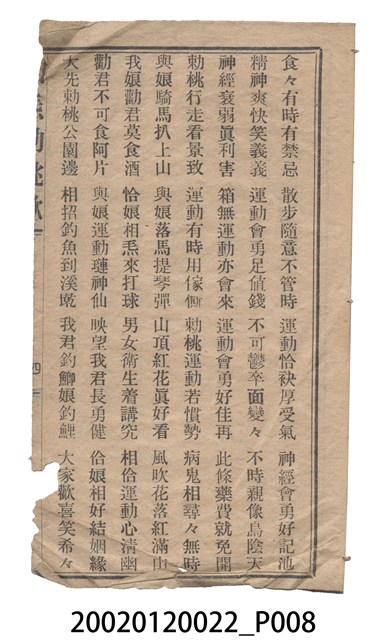 食々有時有禁忌　散步隨意不管時　運動恰袂厚受氣　神經會勇好記池
精神爽快笑義義　運動會勇足値錢　不可鬱卒面變々　不時親像烏陰天
神經衰弱眞利害　箱無運動亦會來　運動會勇好佳再　此條藥費就免開
勅桃行走看景致　運動有時用傢俬　勅桃運動若慣勢　病鬼相尋々無時
與娘騎馬扒上山　與娘落馬提琴彈　山頂紅花眞好看　風吹花落紅滿山
我娘勸君莫食酒　恰娘相炁來打球　男女衛生着講究　相佮運動心淸幽
勸君不可食阿片　與娘運動璉神仙　映望我君長勇健　佮娘相好結姻緣
大先勅桃公園邊　相招釣魚到溪墘　我君釣鯽娘釣鯉　大家歡喜笑希々
四
20020120022_P008